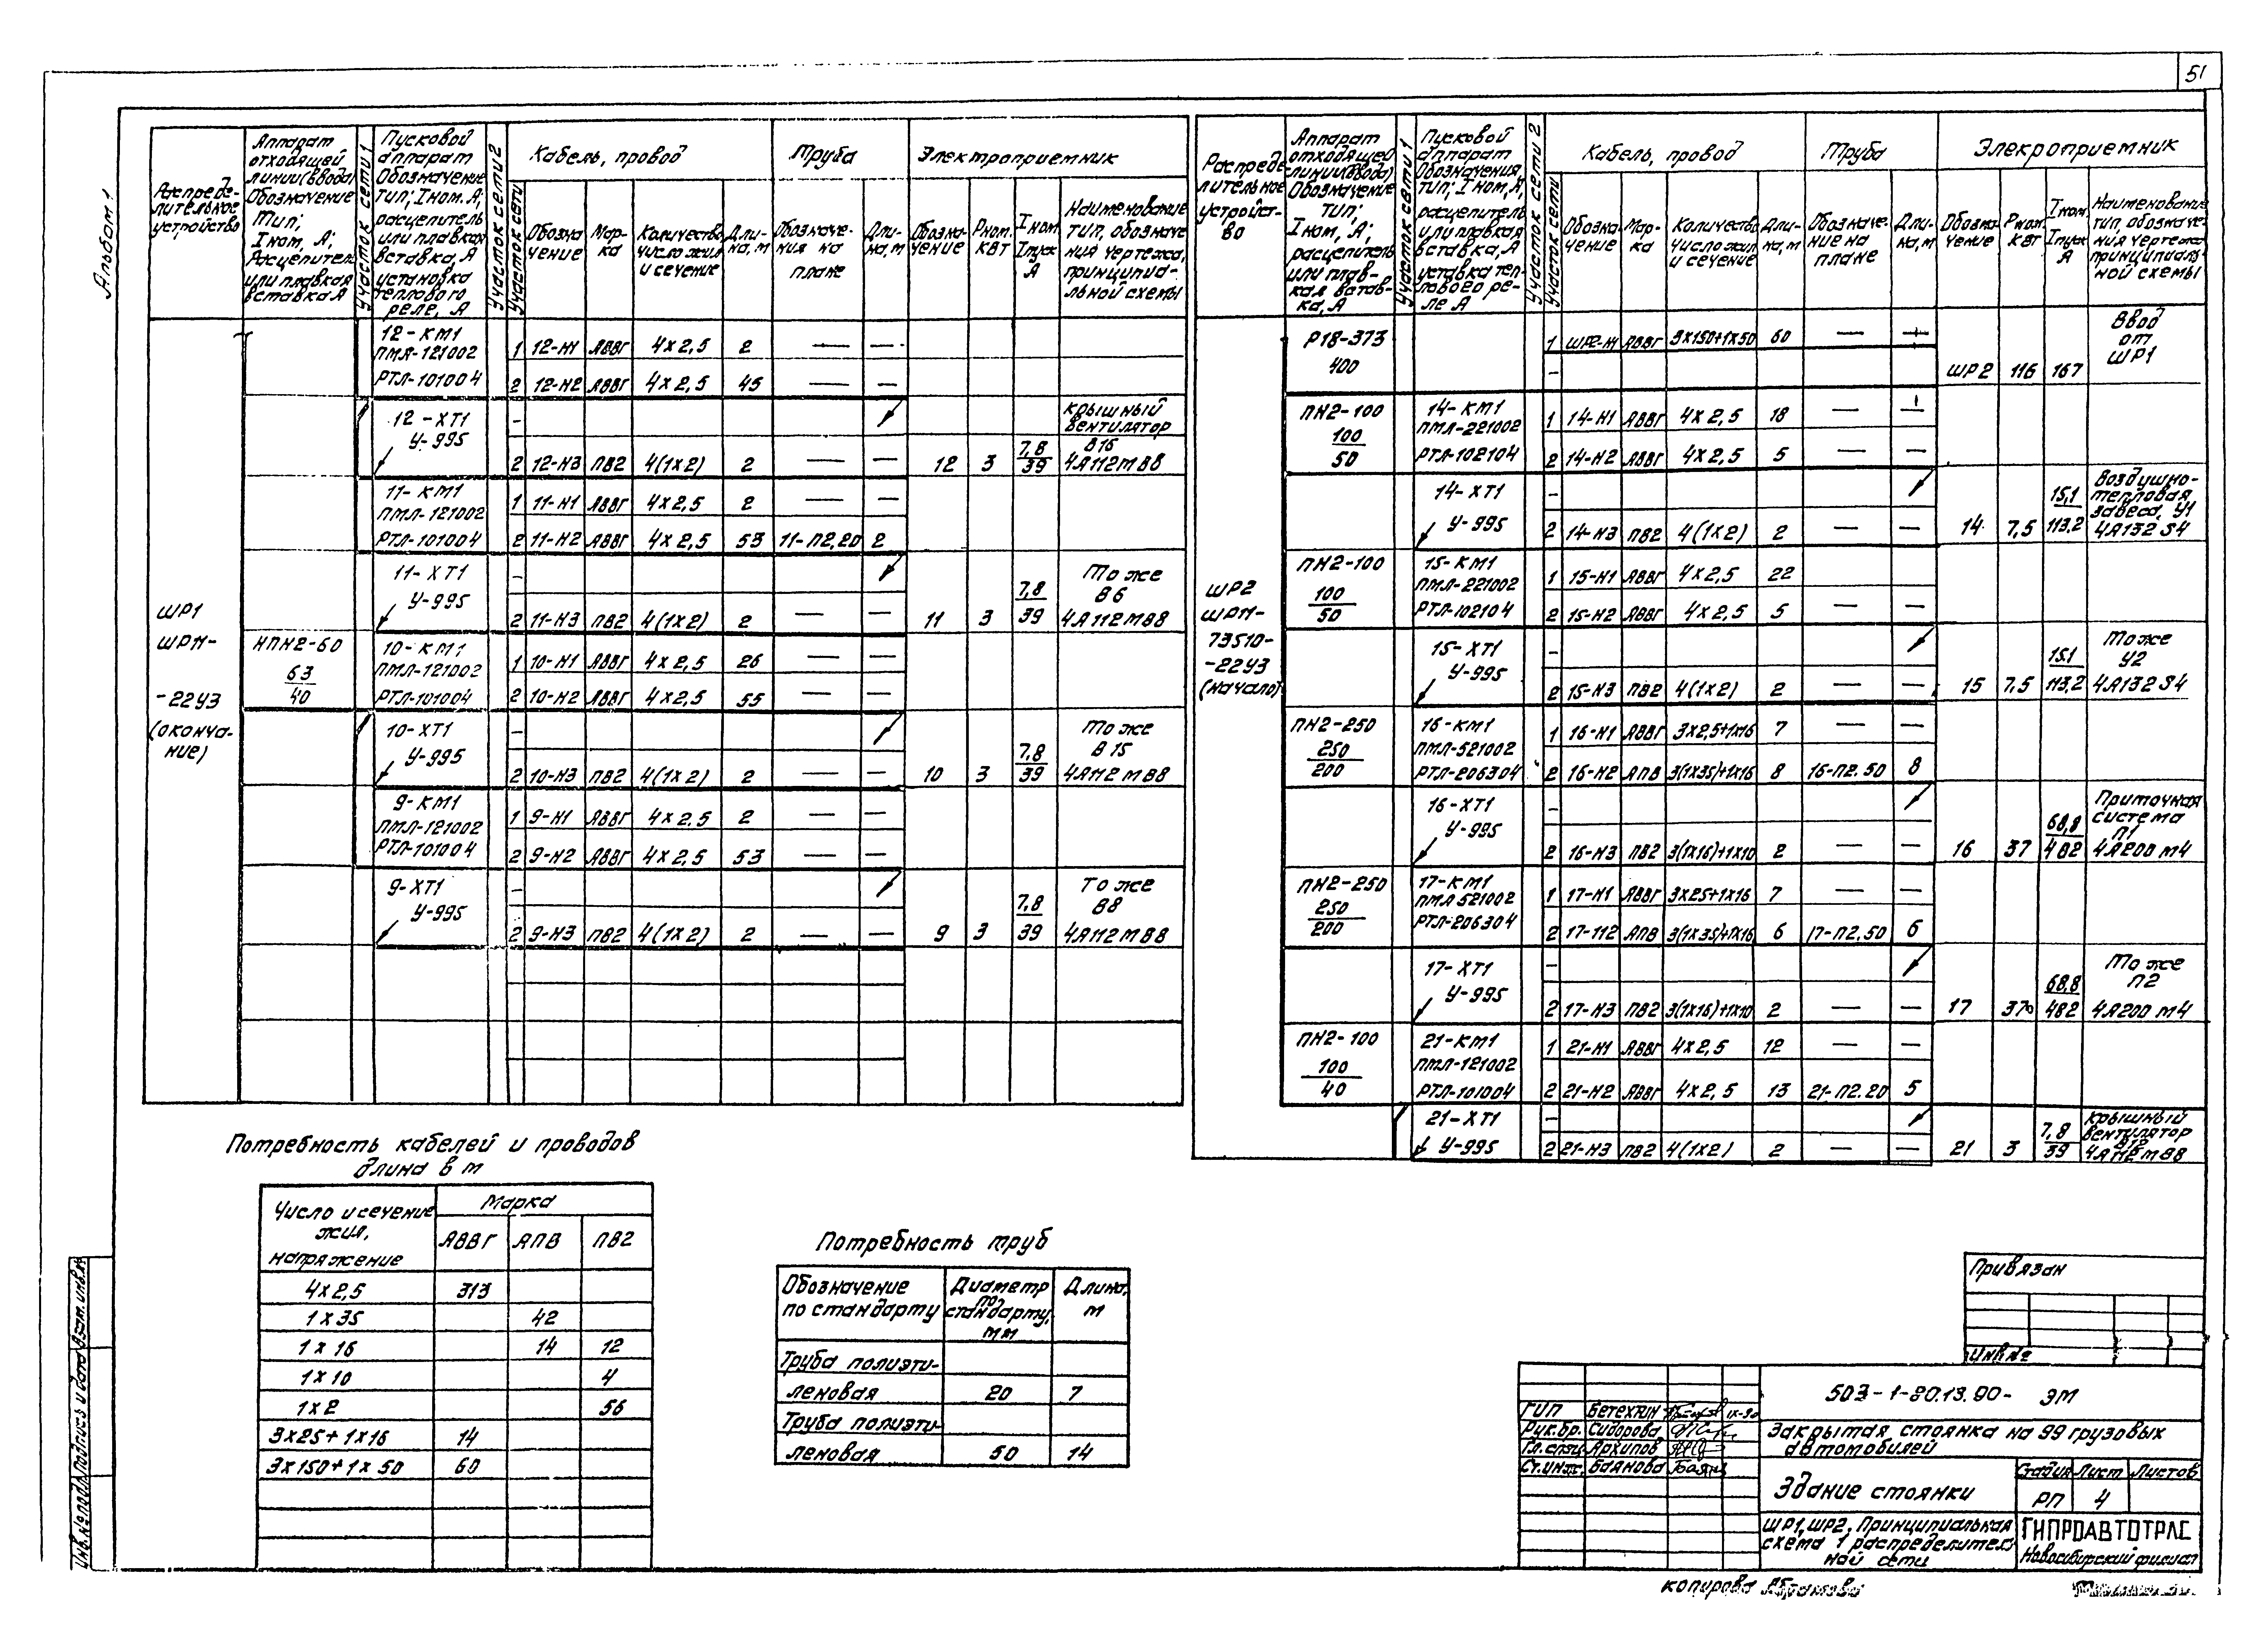 51
Альбом 1
Распреде-
лительное
устройство
Аппарат
отходящей
линии (ввода)
Обозначение
Тип;
Iном, А;
Расцепитель
или плавкая
вставка А
Участок сети 1
Пусковой
аппарат
Обозначение
тип; Iном. А;
расцепитель
или плавкая
вставка, А
установка
теплового
реле, А
Участок сети 2
Участок сети
Кабель, провод
Обозна-
чение
Мар-
ка
Количество,
число жил
и сечение
Дли-
на, м
Труба
Обозначе-
ния на
плане
Дли-
на, м
Электроприемник
Обозна-
чение
Pном.
кВт
Iном
Iпуск
А
Наименование
тип, обозначе-
ния чертежа,
принципиа-
льной схемы
ШР1
ШР11-
-22У3
(оконча-
ние)
12-КМ1
ПМЛ-121002
РТЛ-101004
1 12-Н1 АВВГ 4х2,5 2 — —
2 12-Н2 АВВГ 4х2,5 45 — —
12-ХТ1
У-995
-
2 12-Н3 ПВ2 4(1х2) 2 — — 12 3 7,8
39
крышный
вентилятор
В16
4А112МВ8
11-КМ1
ПМЛ-121002
РТЛ-101004
1 11-Н1 АВВГ 4х2,5 2 — —
2 11-Н2 АВВГ 4х2,5 53 11-П2,20 2
11-ХТ1
У-995
-
2 11-Н3 ПВ2 4(1х2) 2 — — 11 3 7,8
39
То же
В6
4А112МВ8
НПН2-60
63
40
10-КМ1
ПМЛ-121002
РТЛ-101004
1 10-Н1 АВВГ 4х2,5 26 — —
2 10-Н2 АВВГ 4х2,5 55 — —
10-ХТ1
У-995
-
2 10-Н3 ПВ2 4(1х2) 2 — — 10 3 7,8
39
То же
В15
4А112МВ8
9-КМ1
ПМЛ-121002
РТЛ-101004
1 9-Н1 АВВГ 4х2,5 2 — —
2 9-Н2 АВВГ 4х2,5 53 — —
9-ХТ1
У-995
-
2 9-Н3 ПВ2 4(1х2) 2 — — 9 3 7,8
39
То же
В8
4А112МВ8
Распреде
лительное
устройст-
во
Аппарат
отходящей
линии (ввода)
Обозначение
тип;
Iном, А;
расцепитель
или плав-
кая встав-
ка, А
Участок сети 1
Пусковой
аппарат
Обозначения,
тип; Iном, А,
расцепитель
или плавкая
вставка, А
уставка теп-
лового ре-
ле А
Участок сети 2
Участок сети
Кабель, провод
Обозна-
чение
Мар-
ка
Количество
число жил
и сечение
Дли-
на, м
Труба
Обозначе-
ние на
плане
Дли-
на, м
Элекроприемник
Обозна-
чение
Pном.
кВт
Iном
Iпуск
А
Наименование
тип, обозначе-
ния чертежа
принципиаль-
ной схемы
ШР2
ШР11-
73510-
-22У3
(начало)
Р18-373
400
1 ШР2-Н1 АВВГ 3х150+1х50 60 — —
-
ШР2 116 167
Ввод
от
ШР1
ПН2-100
100
50
14-КМ1
ПМЛ-221002
РТЛ-102104
1 14-Н1 АВВГ 4х2,5 18 — —
2 14-Н2 АВВГ 4х2,5 5 — —
14-ХТ1
У-995
-
2 14-Н3 ПВ2 4(1х2) 2 — — 14 7,5 15,1
113,2
Воздушно-
тепловая
завеса, У1
4А132S4
ПН2-100
100
50
15-КМ1
ПМЛ-221002
РТЛ-102104
1 15-Н1 АВВГ 4х2,5 22
2 15-Н2 АВВГ 4х2,5 5 — —
15-ХТ1
У-995
-
2 15-Н3 ПВ2 4(1х2) 2 — — 15 7,5 15,1
113,2
То же
У2
4А132S4
ПН2-250
250
200
16-КМ1
ПМЛ-521002
РТЛ-206304
1 16-Н1 АВВГ 3х2,5+1х16 7 — —
2 16-Н2 АПВ 3(1х35)+1х16 8 16-П2.50 8
16-ХТ1
У-995
-
2 16-Н3 ПВ2 3(1х16)+1х10 2 — — 16 37 68,8
482
Приточная
система
П1
4А200М4
ПН2-250
250
200
17-КМ1
ПМЛ 521002
РТЛ-206304
1 17-Н1 АВВГ 3х25+1х16 7 — —
2 17-112 АПВ 3(1х35)+1х16 6 17-П2,50 6
17-ХТ1
У-995
-
2 17-Н3 ПВ2 3(1х16)+1х10 2 — — 17 37 68,8
482
То же
П2
4А200М4
ПН2-100
100
40
21-КМ1
ПМЛ-121002
РТЛ-101004
1 21-Н1 АВВГ 4х2,5 12 — —
2 21-Н2 АВВГ 4х2,5 13 21-П2.20 5
21-ХТ1
У-995
-
2 21-Н3 ПВ2 4(1х2) 2 — — 21 3 7,8
39
крышный
вентилятор
В12
4А112МВ8
Потребность кабелей и проводов
длина в м
Число и сечение
жил,
напряжение
Марка
АВВГ АПВ ПВ2
4х2,5 313
1х35 42
1х16 14 12
1х10 4
1х2 56
3х25+1х16 14
3х150+1х50 60
Потребность труб
Обозначение
по стандарту
Диаметр
по
стандарту,
мм
Длина,
м
Труба полиэти-
леновая 20 7
Труба полиэти-
леновая 50 14
Привязан
Инв.№
503-1-80.13.90- ЭМ
ГИП Бетехтин IX-90
Рук.бр. Сидорова
Гл.спец. Архипов
Ст.инж. Баянова
Закрытая стоянка на 99 грузовых
автомобилей
Здание стоянки
Стадия Лист Листов
РП 4
ШР1, ШР2. Принципиальная
схема 1 распределитель
ной сети
ГИПРОАВТОТРАНС
Новосибирский филиал
Инв.№ подл. Подпись и дата Взам.инв.№
копирова Абрамова